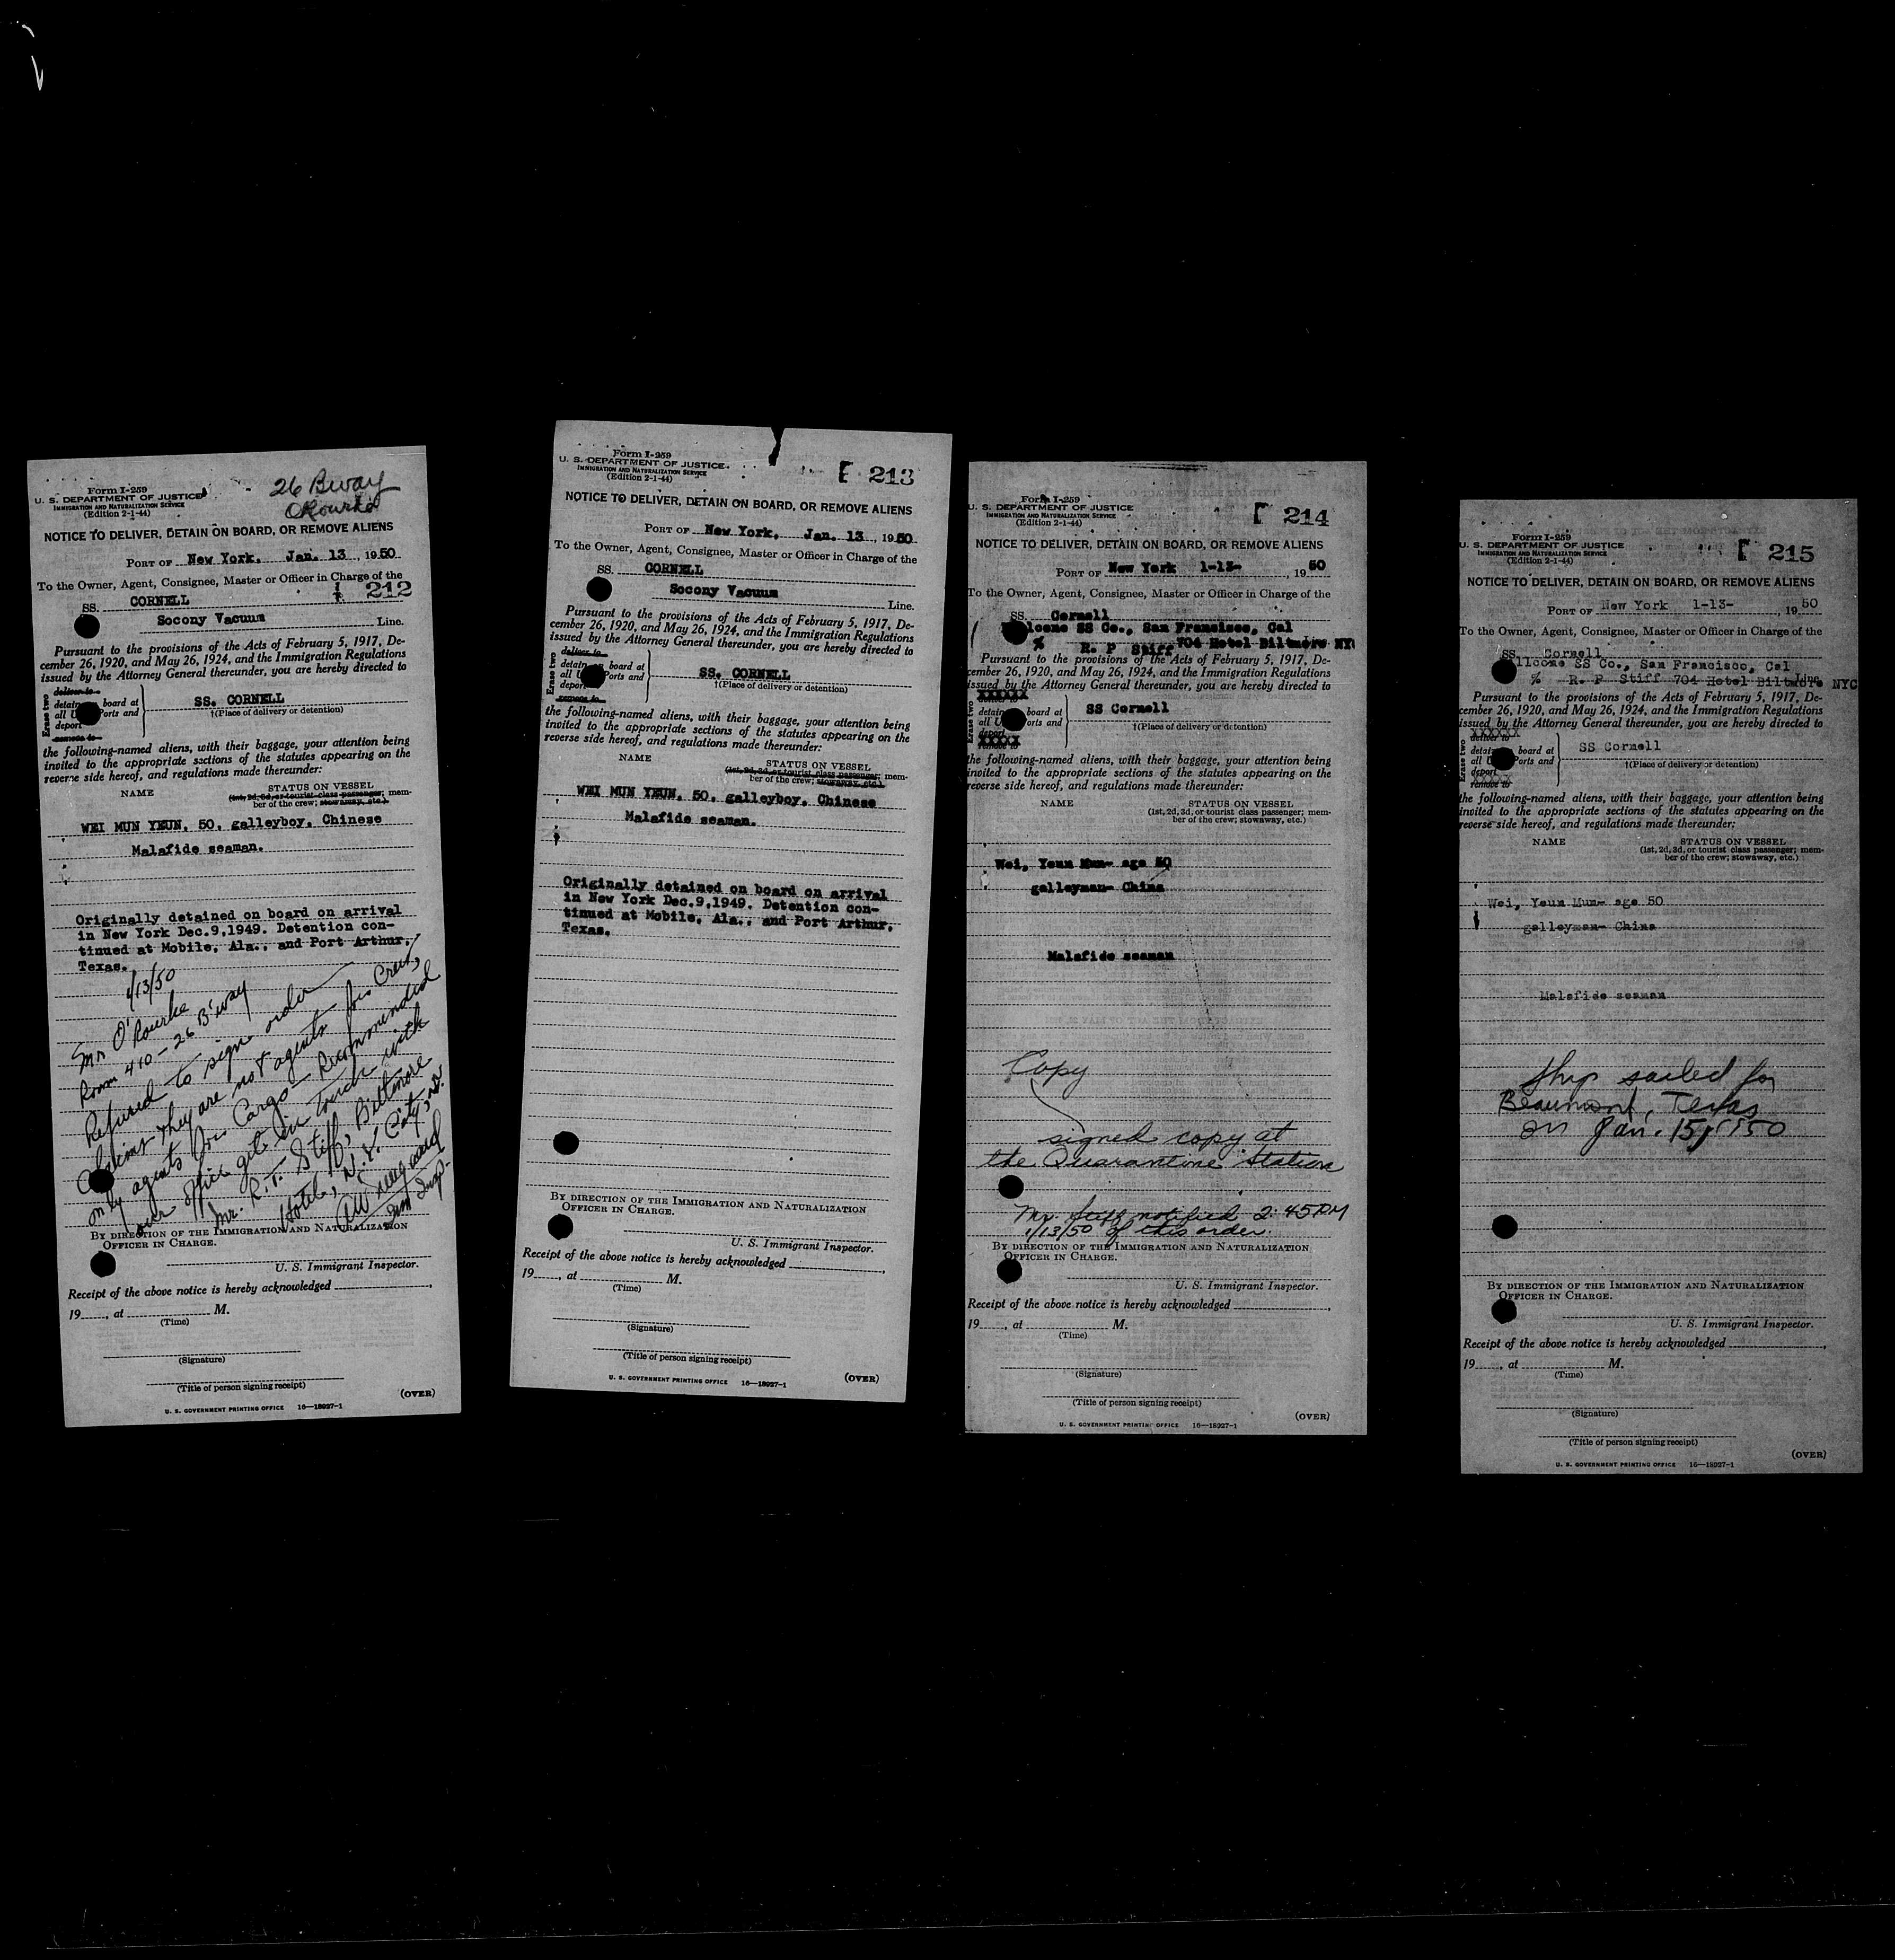 Form I-259
U. S. DEPARTMENT OF JUSTICE
IMMIGRATION AND NATURALIZATION SERVICE
(Edition 2-1-44)
26 Bway
O'Rourke
NOTICE TO DELIVER, DETAIN ON BOARD, OR REMOVE ALIENS
PORT OF New York, Jan. 13, 1950
To the Owner, Agent, Consignee, Master or Officer in Charge of the
SS. CORNELL 212
Socony Vacuum Line.
Pursuant to the provisions of the Acts of February 5, 1917, De-
cember 26, 1920, and May 26, 1924, and the Immigration Regulations
issued by the Attorney General thereunder, you are hereby directed to
Erase two
deliver to
detain on board at
all U Ports and
deport
remove to
SS. CORNELL
†(Place of delivery or detention)
the following-named aliens, with their baggage, your attention being
invited to the appropriate sections of the statutes appearing on the
reverse side hereof, and regulations made thereunder:
NAME STATUS ON VESSEL
(1st, 2d, 3d, or tourist class passenger; mem-
ber of the crew; stowaway, etc.)
WEI MUN YEUN, 50, galleyboy, Chinese
Malafide seaman.
Originally detained on board on arrival
in New York Dec.9,1949. Detention con-
tinued at Mobile, Ala., and Port Arthur,
Texas.
1/13/50
Mr O'Rourke
Room 410 - 26 B'way
Refused to sign order
Claims they are not agents for Crew,
only agents for Cargo - Recommended
our office get in touch with
Mr. R. T. Stiff, Biltmore
Hotel, N.Y. City, N.Y.
Imm Insp.
BY DIRECTION OF THE IMMIGRATION AND NATURALIZATION
OFFICER IN CHARGE.
U. S. Immigrant Inspector.
Receipt of the above notice is hereby acknowledged
19, at M.
(Time)
(Signature)
(Title of person signing receipt)
(OVER)
U. S. GOVERNMENT PRINTING OFFICE 16—18927-1
Form I-259
U. S. DEPARTMENT OF JUSTICE
IMMIGRATION AND NATURALIZATION SERVICE
(Edition 2-1-44)
213
NOTICE TO DELIVER, DETAIN ON BOARD, OR REMOVE ALIENS
PORT OF New York, Jan. 13, 1950
To the Owner, Agent, Consignee, Master or Officer in Charge of the
SS. CORNELL
Socony Vacuum Line.
Pursuant to the provisions of the Acts of February 5, 1917, De-
cember 26, 1920, and May 26, 1924, and the Immigration Regulations
issued by the Attorney General thereunder, you are hereby directed to
Erase two
deliver to
detain on board at
all U Ports and
deport
remove to
SS. CORNELL
†(Place of delivery or detention)
the following-named aliens, with their baggage, your attention being
invited to the appropriate sections of the statutes appearing on the
reverse side hereof, and regulations made thereunder:
NAME STATUS ON VESSEL
(1st, 2d, 3d, or tourist class passenger; mem-
ber of the crew; stowaway, etc.)
WEI MUN YEUN, 50, galleyboy, Chinese
Malafide seaman.
Originally detained on board on arrival
in New York Dec.9,1949. Detention con-
tinued at Mobile, Ala., and Port Arthur,
Texas.
BY DIRECTION OF THE IMMIGRATION AND NATURALIZATION
OFFICER IN CHARGE.
U. S. Immigrant Inspector.
Receipt of the above notice is hereby acknowledged
19, at M.
(Time)
(Signature)
(Title of person signing receipt)
U. S. GOVERNMENT PRINTING OFFICE 16—18927-1
(OVER)
Form I-259
U. S. DEPARTMENT OF JUSTICE
IMMIGRATION AND NATURALIZATION SERVICE
(Edition 2-1-44)
214
NOTICE TO DELIVER, DETAIN ON BOARD, OR REMOVE ALIENS
PORT OF New York 1-13-, 1950
To the Owner, Agent, Consignee, Master or Officer in Charge of the
SS. Cornell
lcone SS Co., San Francisco, Cal
% R. P Stiff 704 Hotel Biltmore NYC
Pursuant to the provisions of the Acts of February 5, 1917, De-
cember 26, 1920, and May 26, 1924, and the Immigration Regulations
issued by the Attorney General thereunder, you are hereby directed to
Erase two
XXXXX
deliver to
detain board at
all U orts and
deport
XXXXX
remove to
SS Cornell
†(Place of delivery or detention)
the following-named aliens, with their baggage, your attention being
invited to the appropriate sections of the statutes appearing on the
reverse side hereof, and regulations made thereunder:
NAME STATUS ON VESSEL
(1st, 2d, 3d, or tourist class passenger; mem-
ber of the crew; stowaway, etc.)
Wei, Yeun Mun- age 50
galleyman- China
Malafide seaman
Copy
signed copy at
the Quarantine Station
Mr. Stiff notified 2:45PM
1/13/50 of this order
BY DIRECTION OF THE IMMIGRATION AND NATURALIZATION
OFFICER IN CHARGE.
U. S. Immigrant Inspector.
Receipt of the above notice is hereby acknowledged
19, at M.
(Time)
(Signature)
(Title of person signing receipt)
(OVER)
U. S. GOVERNMENT PRINTING OFFICE 16—18927-1
Form I-259
U. S. DEPARTMENT OF JUSTICE
IMMIGRATION AND NATURALIZATION SERVICE
(Edition 2-1-44)
215
NOTICE TO DELIVER, DETAIN ON BOARD, OR REMOVE ALIENS
PORT OF New York 1-13-, 1950
To the Owner, Agent, Consignee, Master or Officer in Charge of the
SS. Cornell
llcone SS Co., San Francisco, Cal
% R. P Stiff 704 Hotel Biltmore NYC
Line.
Pursuant to the provisions of the Acts of February 5, 1917, De-
cember 26, 1920, and May 26, 1924, and the Immigration Regulations
issued by the Attorney General thereunder, you are hereby directed to
Erase two
XXXXXX
deliver to
detain board at
all U Ports and
deport
XXXXX
remove to
SS Cornell
†(Place of delivery or detention)
the following-named aliens, with their baggage, your attention being
invited to the appropriate sections of the statutes appearing on the
reverse side hereof, and regulations made thereunder:
NAME STATUS ON VESSEL
(1st, 2d, 3d, or tourist class passenger; mem-
ber of the crew; stowaway, etc.)
Wei, Yeun Mun- age 50
galleyman- China
Malafide seaman
Ship sailed for
Beaumont, Texas
on Jan. 15, 1950
BY DIRECTION OF THE IMMIGRATION AND NATURALIZATION
OFFICER IN CHARGE.
U. S. Immigrant Inspector.
Receipt of the above notice is hereby acknowledged
19, at M.
(Time)
(Signature)
(Title of person signing receipt)
(OVER)
U. S. GOVERNMENT PRINTING OFFICE 16—18927-1